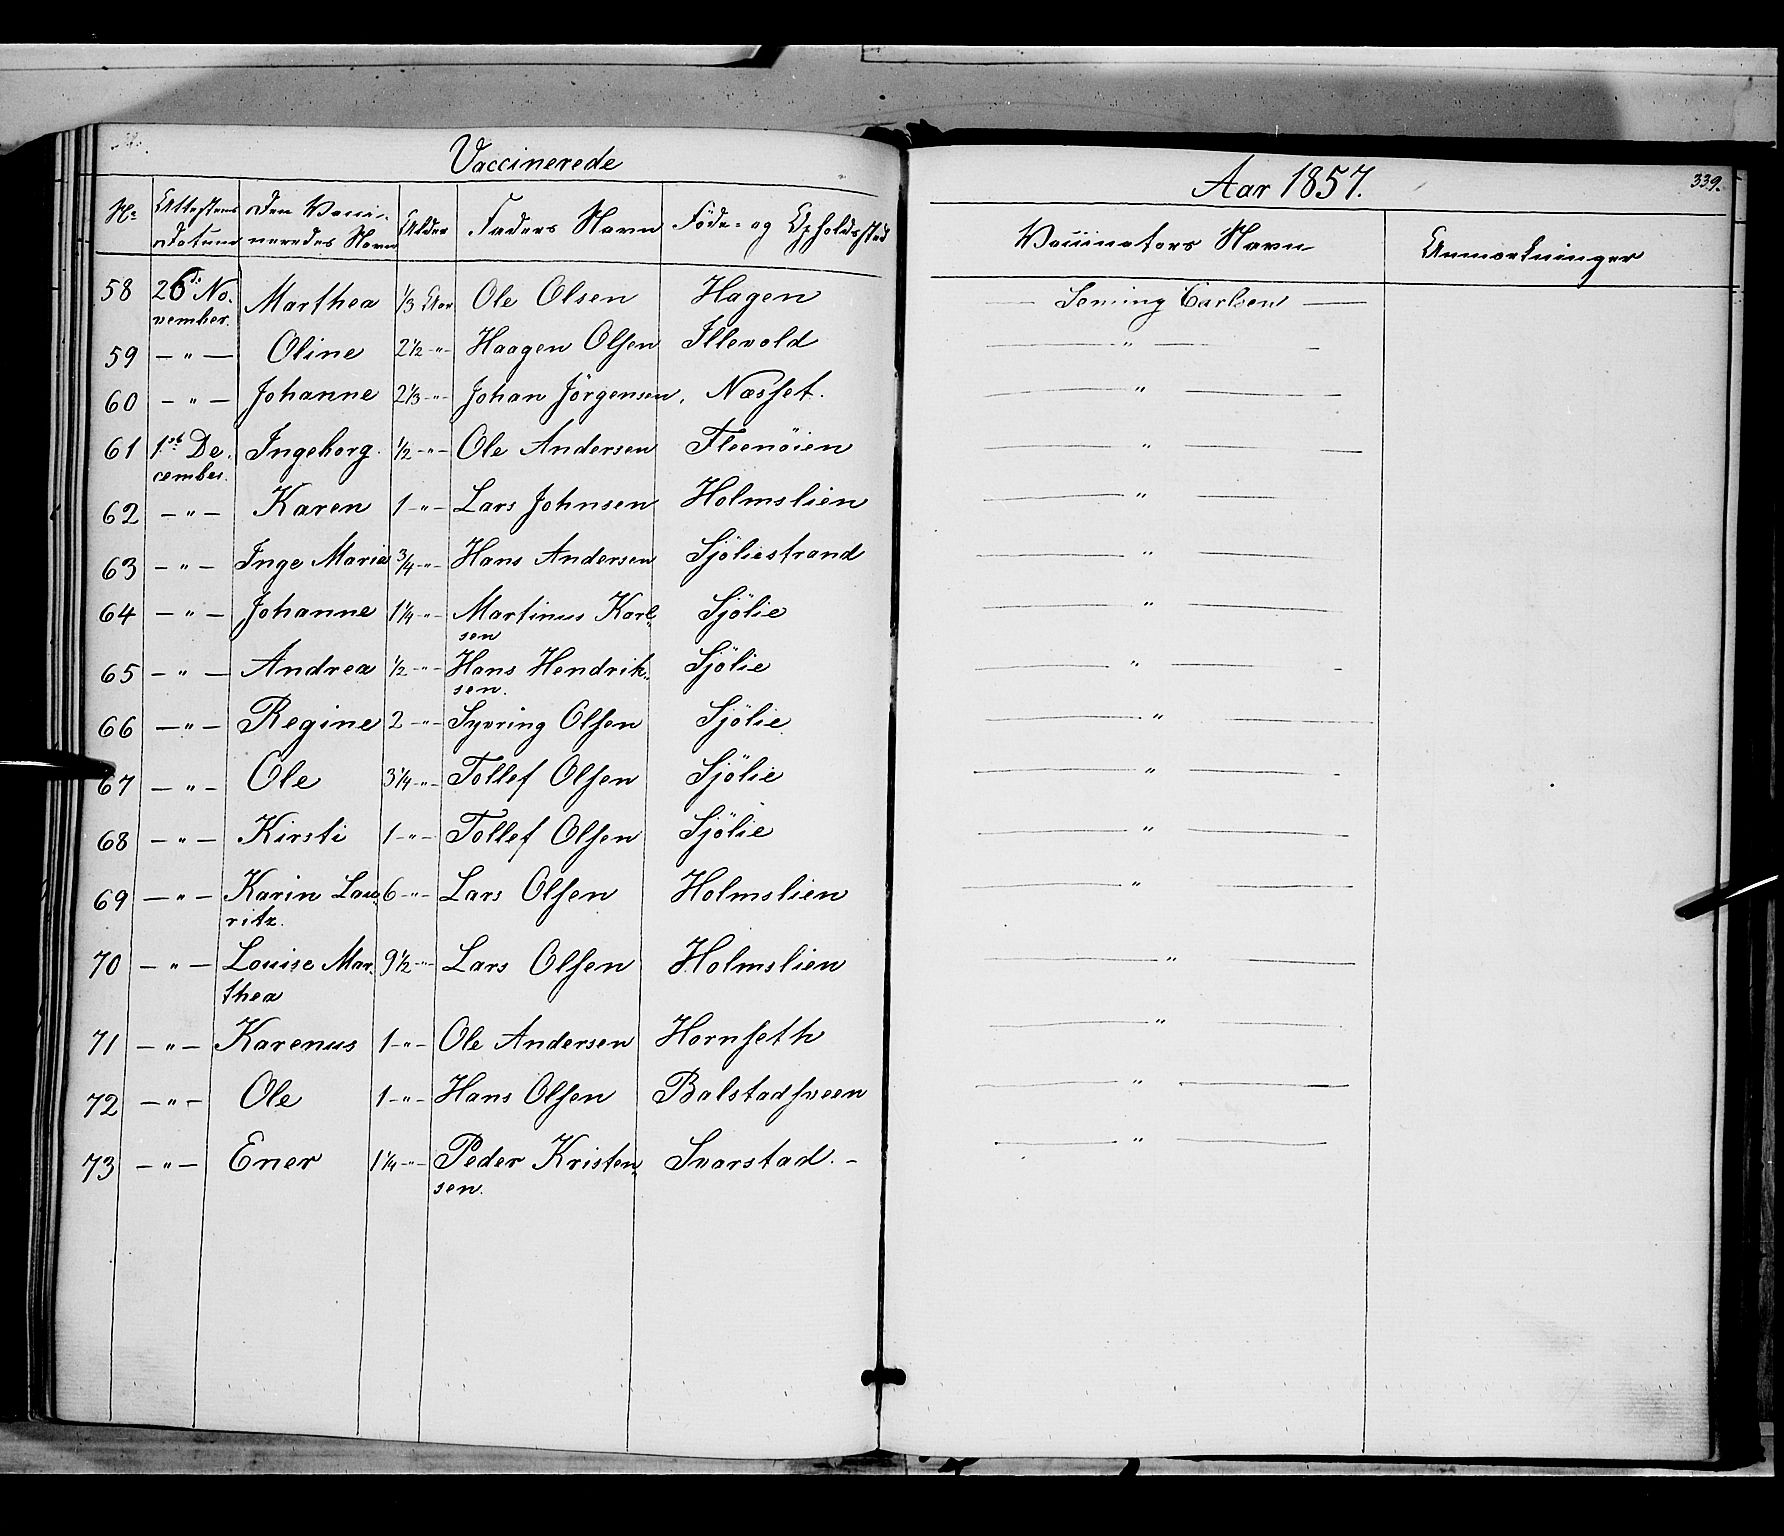 Vaccinerede
Aar 1857.
339.
No Attestens Datum Den Vacci- neredes Navn Alder Faders Navn Föde- og Opholdssted Vaccinators Navn Anmærkninger
58 26de No- vember. Marthea 1/3 Aar Ole Olsen Hagen — Seming Carlsen —
59 — " — Oline 2 1/2 -"- Haagen Olsen Illevold — " —
60 — " — Johanne 2 1/3 -"- Johan Jörgensen, Næsset. — " —
61 1ste De- cember. Ingeborg. 1/2 -"- Ole Andersen Fleenöien — " —
62 — " — Karen 1 -"- Lars Johnsen Holmslien — " —
63 — " — Inge Marie 3/4 -"- Hans Andersen Sjöliestrand — " —
64 — " — Johanne 1 1/4 -"- Martinus Karl- sen Sjölie — " —
65 — " — Andrea 1/2 -"- Hans Hendrik- sen. Sjölie — " —
66 — " — Regine 2 -"- Syvring Olsen Sjölie — " —
67 — " — Ole 3 1/4 -"- Tollef Olsen Sjölie — " —
68 — " — Kirsti 1 -"- Tollef Olsen Sjölie — " —
69 — " — Karin Lau- ritz. 6 -"- Lars Olsen Holmslien — " —
70 — " — Louise Mar- thea 9 1/2 -"- Lars Olsen Holmslien — " —
71 — " — Karenus 1 -"- Ole Andersen Hornseth — " —
72 — " — Ole 1 -"- Hans Olsen Balstadsveen — " —
73 — " — Ener 1 1/4 -"- Peder Kristen- sen. Svarstad. — " —